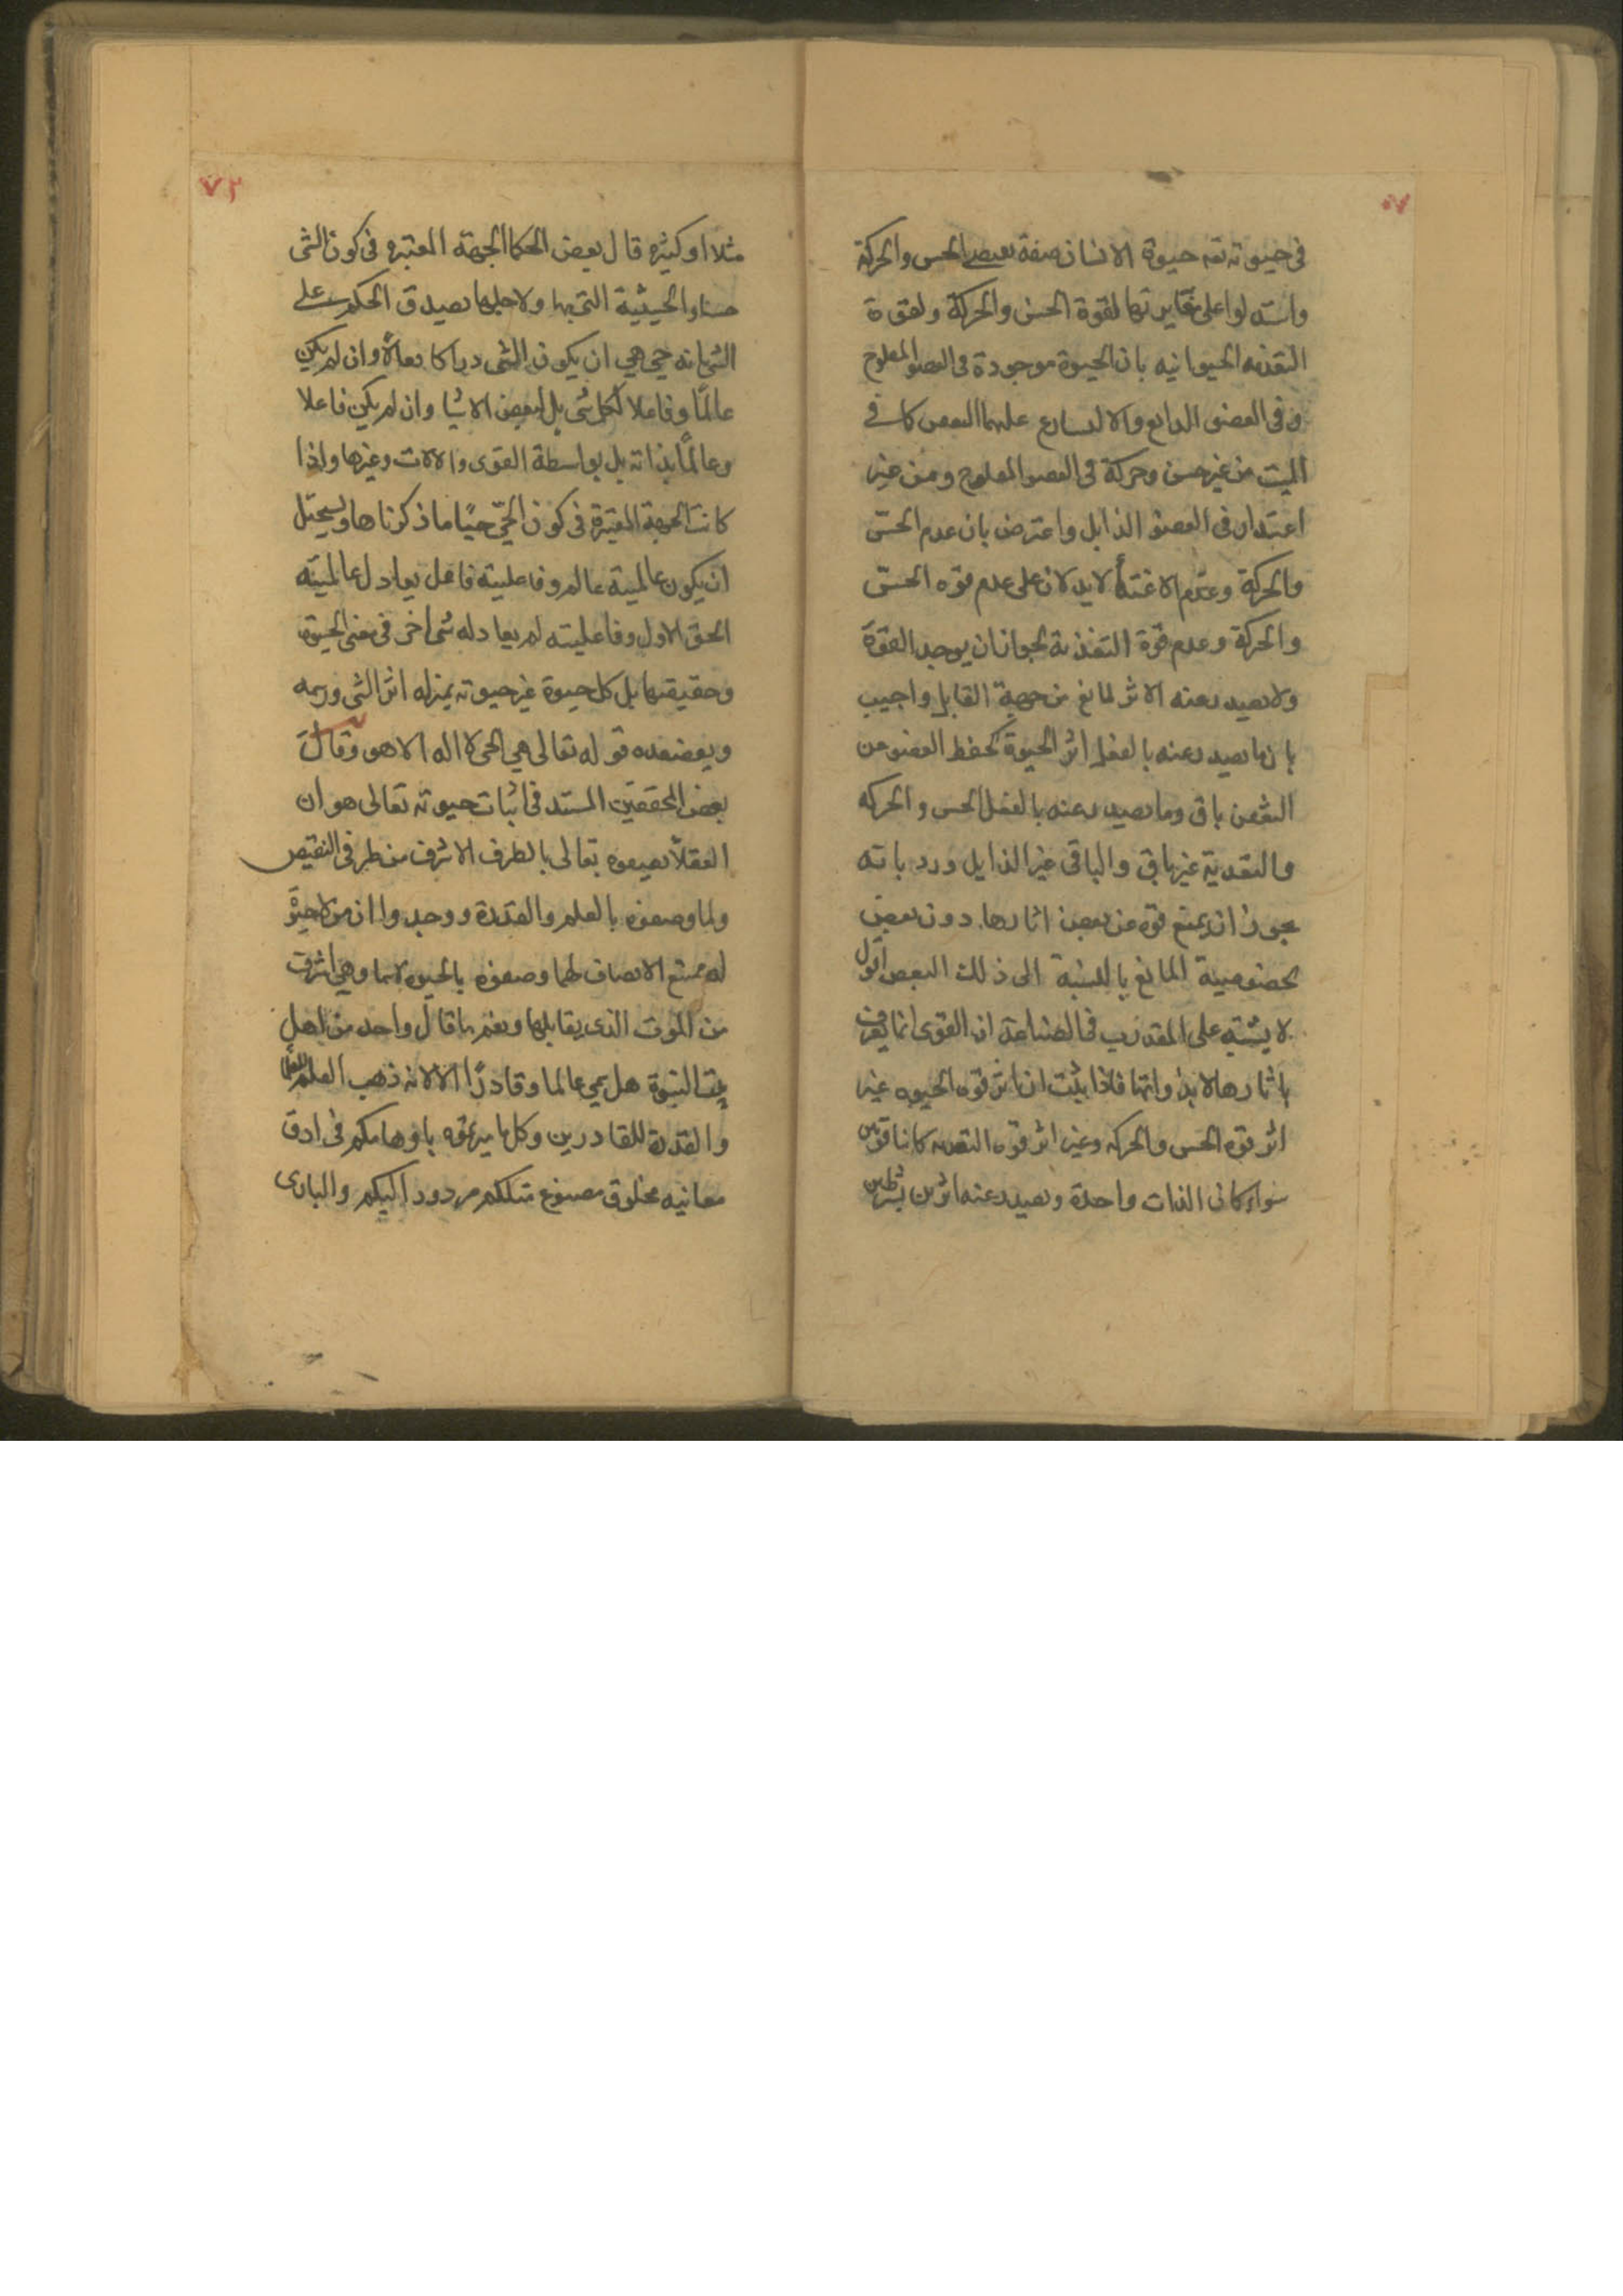 ٧٠
في حيوته تعه حيوة الانسان صفة الحس والحركة
واستدلوا على مغايرتها لقوة الحس والحركة ولقوة
التغذيه الحيوانيه بان الحيوة موجودة في العضو المفلوج
وفي العضو والا عليهما التعفن كما في
الميت من غير حس وحركة في العضو المفلوج ومن غير
اغتداء في العضو الذابل واعترض بان عدم الحس
والحركة وعدم الاغتداء لا يدلان على عدم قوه الحس
والحركة وعدم قوة التغذية لجواز ان يوجد القوة
ولا يصدر عنه الاثر لمانع من جهة القابل واجيب
بان ما يصدر عنه بالفعل اثر الحيوة كحفظ العضو عن
التعفن باق وما يصدر عنه بالفعل الحس والحركه
والتغدية غير باق والباقي غير الزايل ورد بانه
يجوز ان يمنع قوه عن بعض اثارها دون بعض
لخصوصية المانع بالنسبة الى ذلك البعض اقول
لا يشتبه على المتدرب في الصناعة ان القوى انما يعرف
باثارها لا بذواتها فاذا ثبت ان اثر قوه الحيوه غير
اثر قوه الحس والحركه وغير اثر قوه التغديه كانا قوتين
سواء كان الذات واحدة ويصدر عنه اثرين بشرطين
٧٢
مثلا او كثيره قال بعض الحكما الجهة المعتبره في كون الشي
حيا والحيثية التي بها ولاجلها يصدق الحكم على
الشي بانه حي هي ان يكون الشي دراكا فعالا وان لم يكن
عالما وفاعلا لكل شي بل لبعض الاشيا وان لم يكن فاعلا
وعالما بذاته بل بواسطة القوى والالات وغيرها واذا
كانت الجهة المعتبرة في كون الحي حيا ما ذكرناها ويستحيل
ان يكون عالمية عالم وفاعلية فاعل يعادل عالميته
الحق الاول وفاعليته لم يعادله شي اخر في معنى الحيوة
وحقيقتها بل كل حيوة غير حيوته بمنزله اثر الشي ورسمه
ويعضده قوله تعالى هي الحي لا اله الا هو وقال
بعض المحققين المستند في اثبات حيوته تعالى هو ان
العقلا يصفوه تعالى بالطرف الاشرف من طرفي النقيض
ولما وصفوه بالعلم والقدرة ووجدوا ان من لا حيوة
له يمتنع الاتصاف لهما وصفوه بالحيوه لاسيما وهي اشرف
من الموت الذي يقابلها ونعم ما قال واحد من اهل
بيت النبوة هل سمي عالما وقادرا الا لانه ذهب العلم للعلما
والقدرة للقادرين وكل ما ميزتموه باوهامكم في ادق
معانيه مخلوق مصنوع مثلكم مردود اليكم والبارى